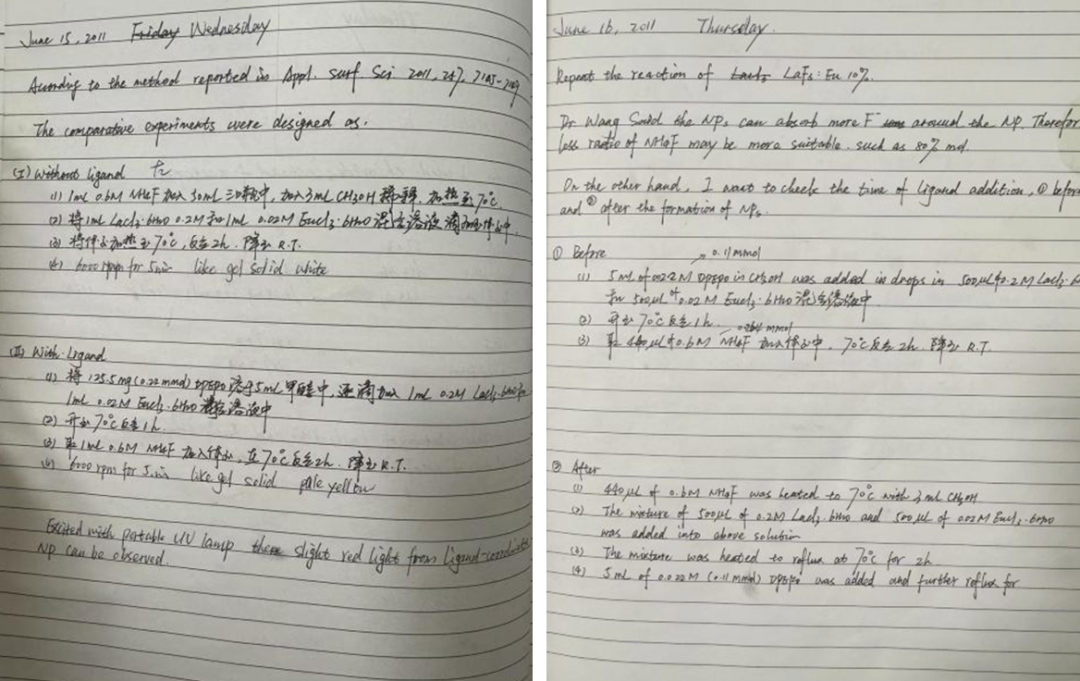 June 15, 2011 Friday Wednesday
According to the method reported in Appl. Surf Sci 2011, 257, 7105-7109
The comparative experiments were designed as.
(I) Without ligand 左
(1) 1mL 0.6M NH4F 加入 50mL 三口瓶中, 加入3mL CH3OH 稀释, 加热至70℃
(2) 将1mL LaCl3·6H2O 0.2M 和 1mL 0.02M EuCl3·6H2O 混合溶液滴加到体系中.
(3) 将体系加热至70℃, 反应2h. 降至R.T.
(4) 6000 rpm for 5min like gel solid white
(II) With Ligand
(1) 将125.5mg (0.22 mmol) DPEPO 溶于5mL 甲醇中, 逐滴加入 1mL 0.2M LaCl3·6H2O 和
1mL 0.02M EuCl3·6H2O 混合溶液中
(2) 升至70℃反应1h.
(3) 取1mL 0.6M NH4F 加入体系, 在70℃反应2h. 降至R.T.
(4) 6000 rpm for 5min like gel solid pale yellow
Excited with portable UV lamp there slight red light from Ligand-coordinate
NP can be observed.
June 16, 2011 Thursday.
Repeat the reaction of LaF3: Eu 10%.
Dr Wang Said the NPs can absorb more F- around the NP. Therefor
less ratio of NH4F may be more suitable. such as 80% mol.
On the other hand, I want to check the time of ligand addition, ① before
and ② after the formation of NPs.
① Before
→ 0.11mmol
(1) 5mL of 0.022M DPEPO in CH3OH was added in drops in 500μL of 0.2M LaCl3·6
和 500μL of 0.02M EuCl3·6H2O 混合溶液中
(2) 升至70℃反应1h.
0.264 mmol
(3) 取 440μL of 0.6M NH4F 加入体系中, 70℃反应2h. 降至R.T.
② After
(1) 440μL of 0.6M NH4F was heated to 70℃ with 3mL CH3OH
(2) The mixture of 500μL of 0.2M LaCl3·6H2O and 500μL of 0.02M EuCl3·6H2O
was added into above solution
(3) The mixture was heated to reflux at 70℃ for 2h
(4) 5mL of 0.022M (0.11mmol) DPEPO was added and further reflux for